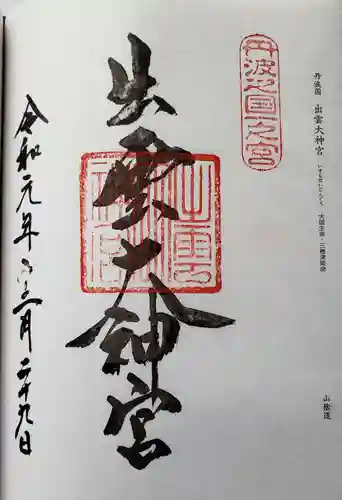 丹波国 出雲大神宮 いずもだいじんぐう 大国主命・三穂津姫命
山陰道
丹波之国一之宮
出雲大神宮
令和元年
二十九日